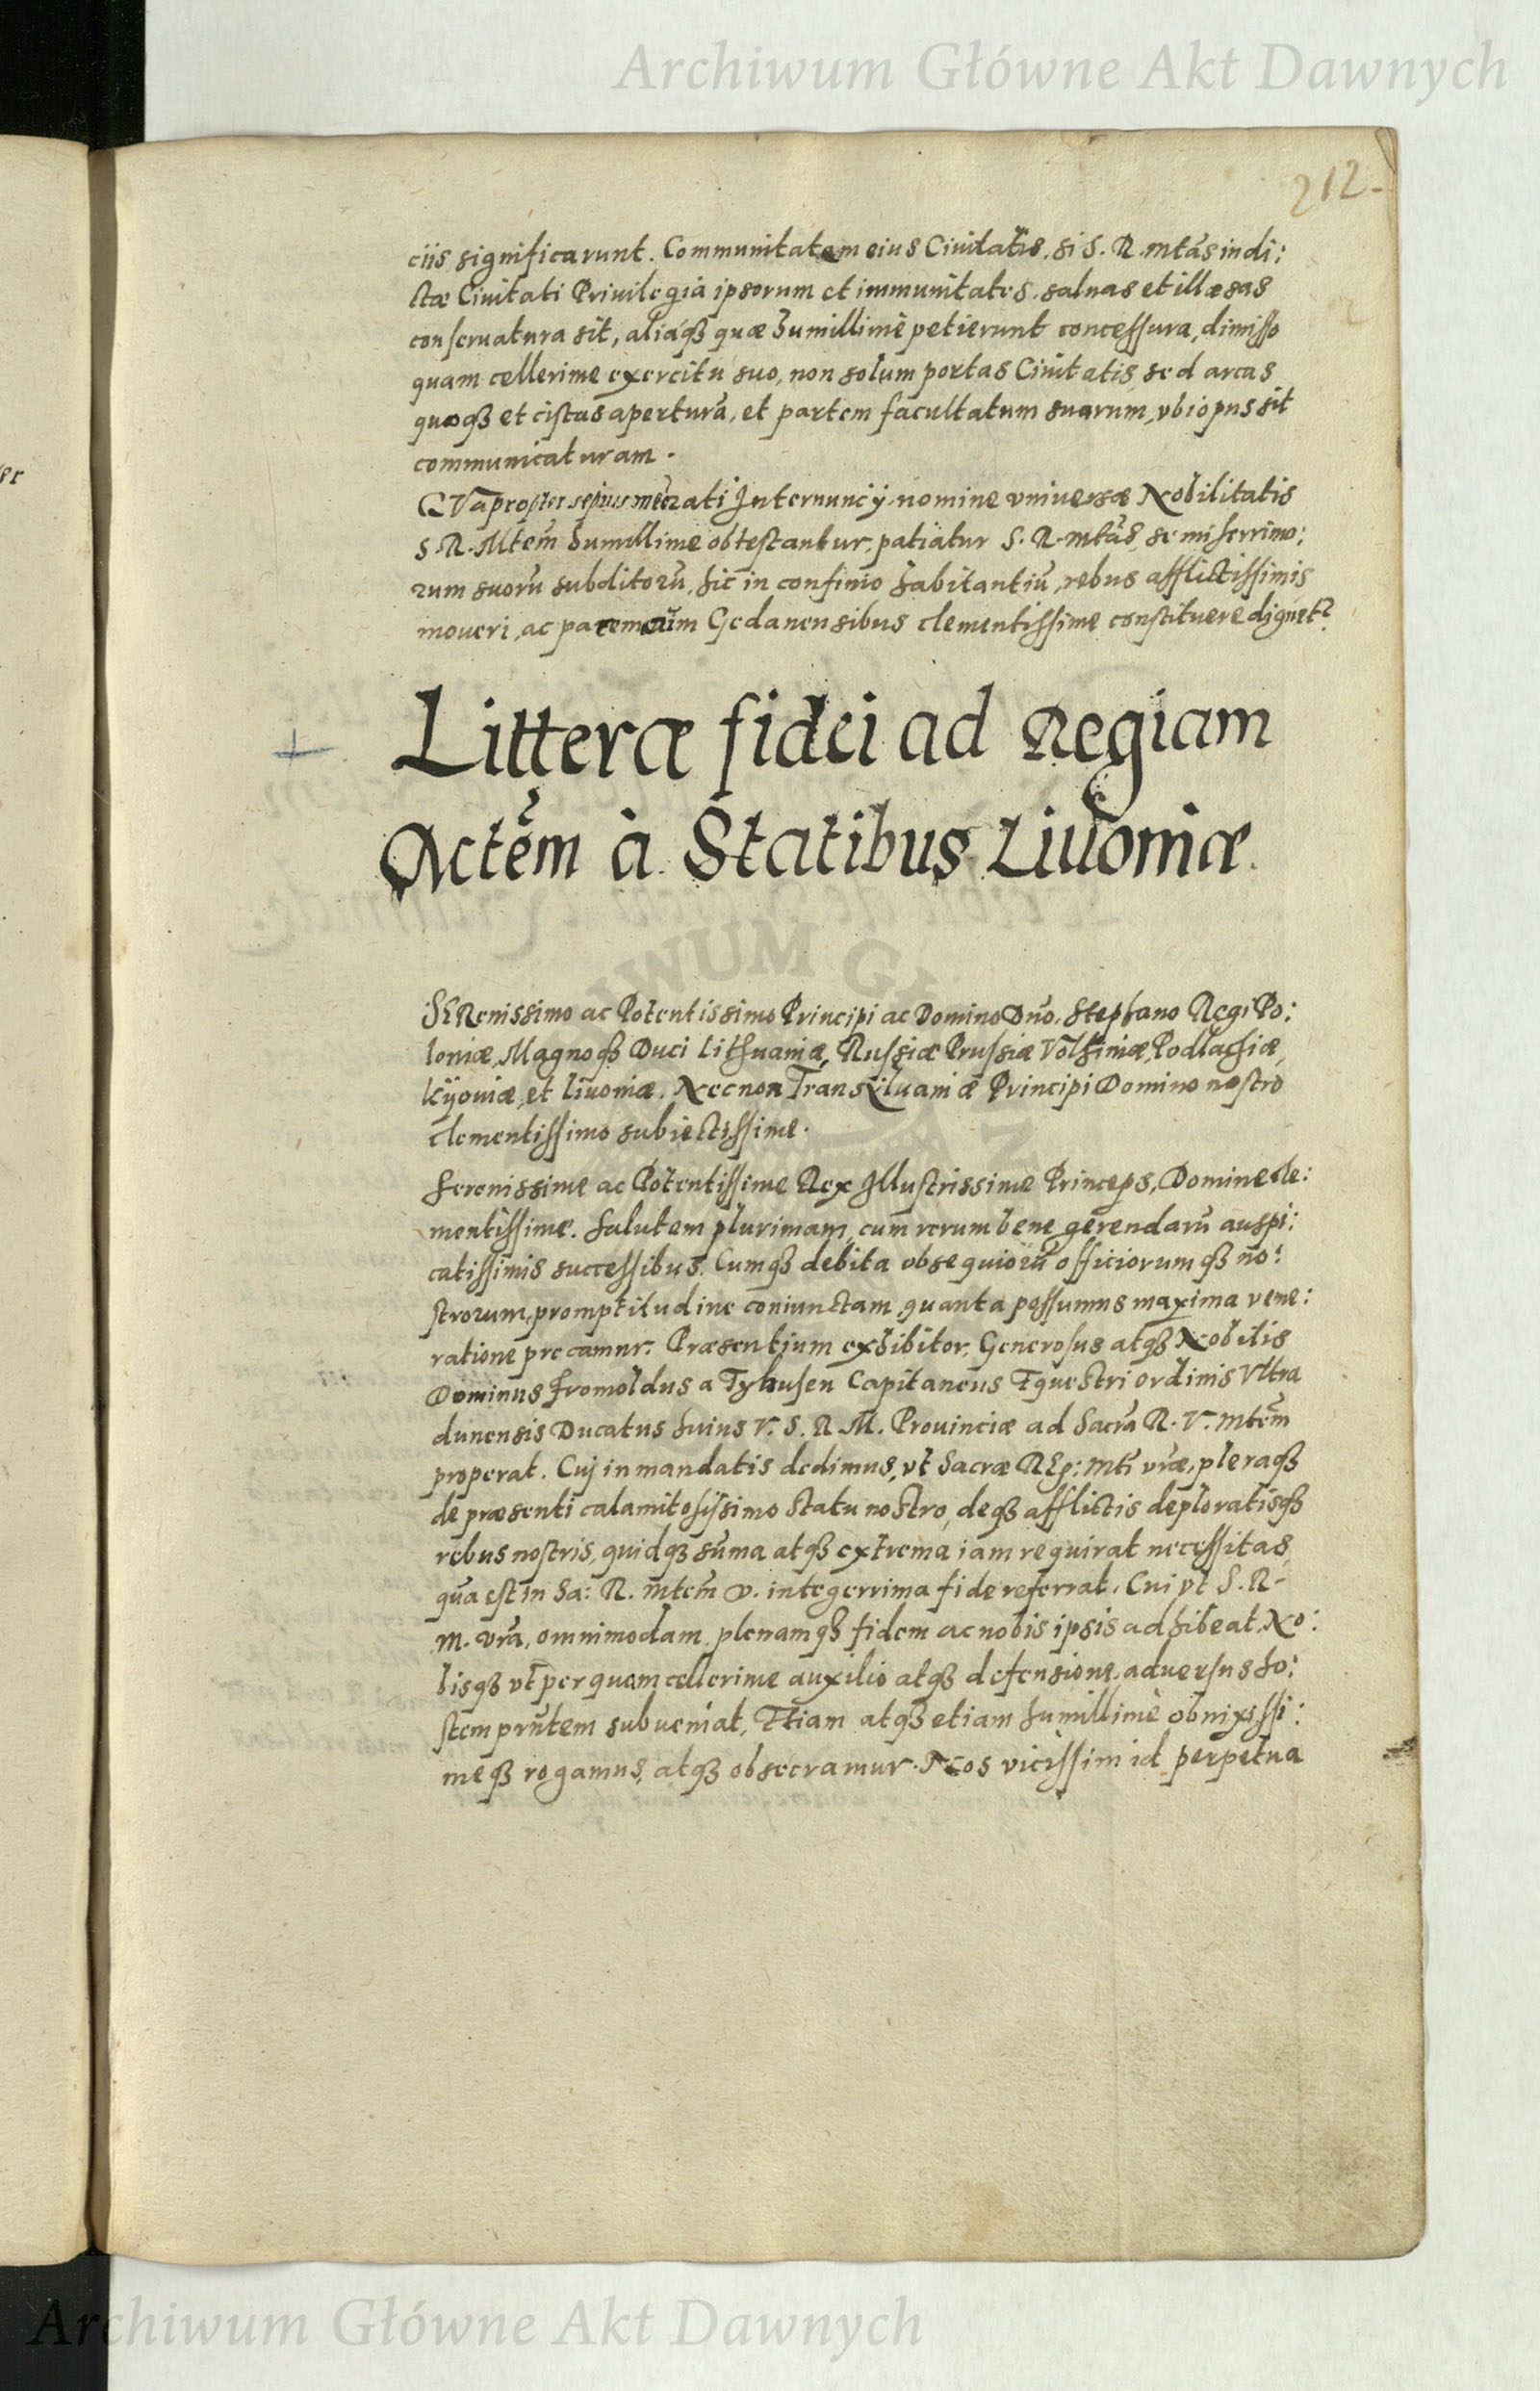 Archiwum Główne Akt Dawnych
212.
ciis significarunt. Communitatem eius Ciuitatis, si S. R. mtas indi:
ctæ Ciuitati Priuilegia ipsorum et immunitates, saluas et illæsas
conseruatura sit, aliaq₃ quæ humillimè petierunt concessura, dimisso
quam cellerime exercitu suo, non solum portas Ciuitatis sed arcas
quoq₃ et cistas aperturā, et partem facultatum suarum, vbi opus sit
communicaturam.
QVapropter sepius mēorati Internuncÿ nomine vniuersæ Nobilitatis
S. R. Mtem humillime obtestantur, patiatur S. R. mtās, se miserrimo:
rum suorū subditorū, hic in confinio habitantiū, rebus afflictissimis
moueri, ac pacem cūm Gedanensibus clementissime constituere dignet?
Litteræ fidei ad Regiam
Mctēm à Statibus Liuoniæ.
SERenissimo ac Potentissimo Principi ac Domino Dnō. Stephano Regi Po:
loniæ, Magnoq₃ Duci Lithuaniæ, Russiæ Prussiæ Volhiniæ, Podlachiæ,
Kÿouiæ, et Liuoniæ. Necnon Transÿluaniæ Principi Domino nostro
clementissimo subiectissime.
Serenissime ac Potentissime Rex Illustrissime Princeps, Domine cle:
mentissime. Salutem plurimam, cum rerum bene gerendarū auspi:
catissimis successibus. Cumq₃ debita obsequiorū officiorumq₃ no:
strorum, promptitudine coniunctam quanta possumus maxima vene:
ratione precamur. Præsentium exhibitor, Generosus atq₃ Nobilis
Dominus fromoldus a Tyhusen Capitaneus Equestri ordinis Vltra
dunensis Ducatus huius V. S. R. M. Prouinciæ ad Sacrā R. V. mtēm
properat. Cuj in mandatis dedimus, vt Sacræ REg: Mti vræ, pleraq₃
de præsenti calamitosissimo statu nostro, deq₃ afflictis deploratisq₃
rebus nostris, quidq₃ sūma atq₃ extrema iam requirat necessitas,
qua est in Sa: R. mtēm v. integerrima fide referrat. Cui vt S. R.
M. vrā, omnimodam plenamq₃ fidem ac nobis ipsis adhibeat, No:
bisq₃ vt per quam cellerime auxilio atq₃ defensione, aduersus ho:
stem prntem subueniat, Etiam atq₃ etiam humillimè obnixissi:
meq₃ rogamus, atq₃ obsecramur. Nos vicissim id perpetua
Archiwum Główne Akt Dawnych